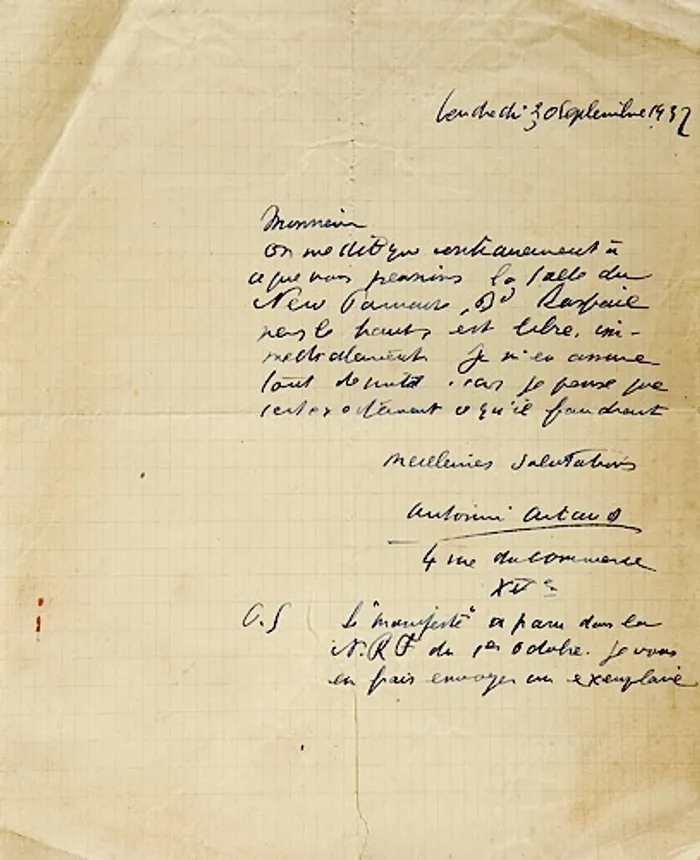 Vendredi 30 Septembre 1932
Monsieur
On me dit que contrairement à
ce que vous pensions la salle du
New , Bd Raspail
est libre, im-
médiatement. Je m'en assure
tout de suite. car je pense que
c'est exactement ce qu'il faudrait
Meilleures Salutations
Antonin Artaud
4 rue du Commerce
XVe
P.S Le "manifeste" a paru dans la
N.R.F du 1er octobre. Je vous
en fais envoyer un exemplaire